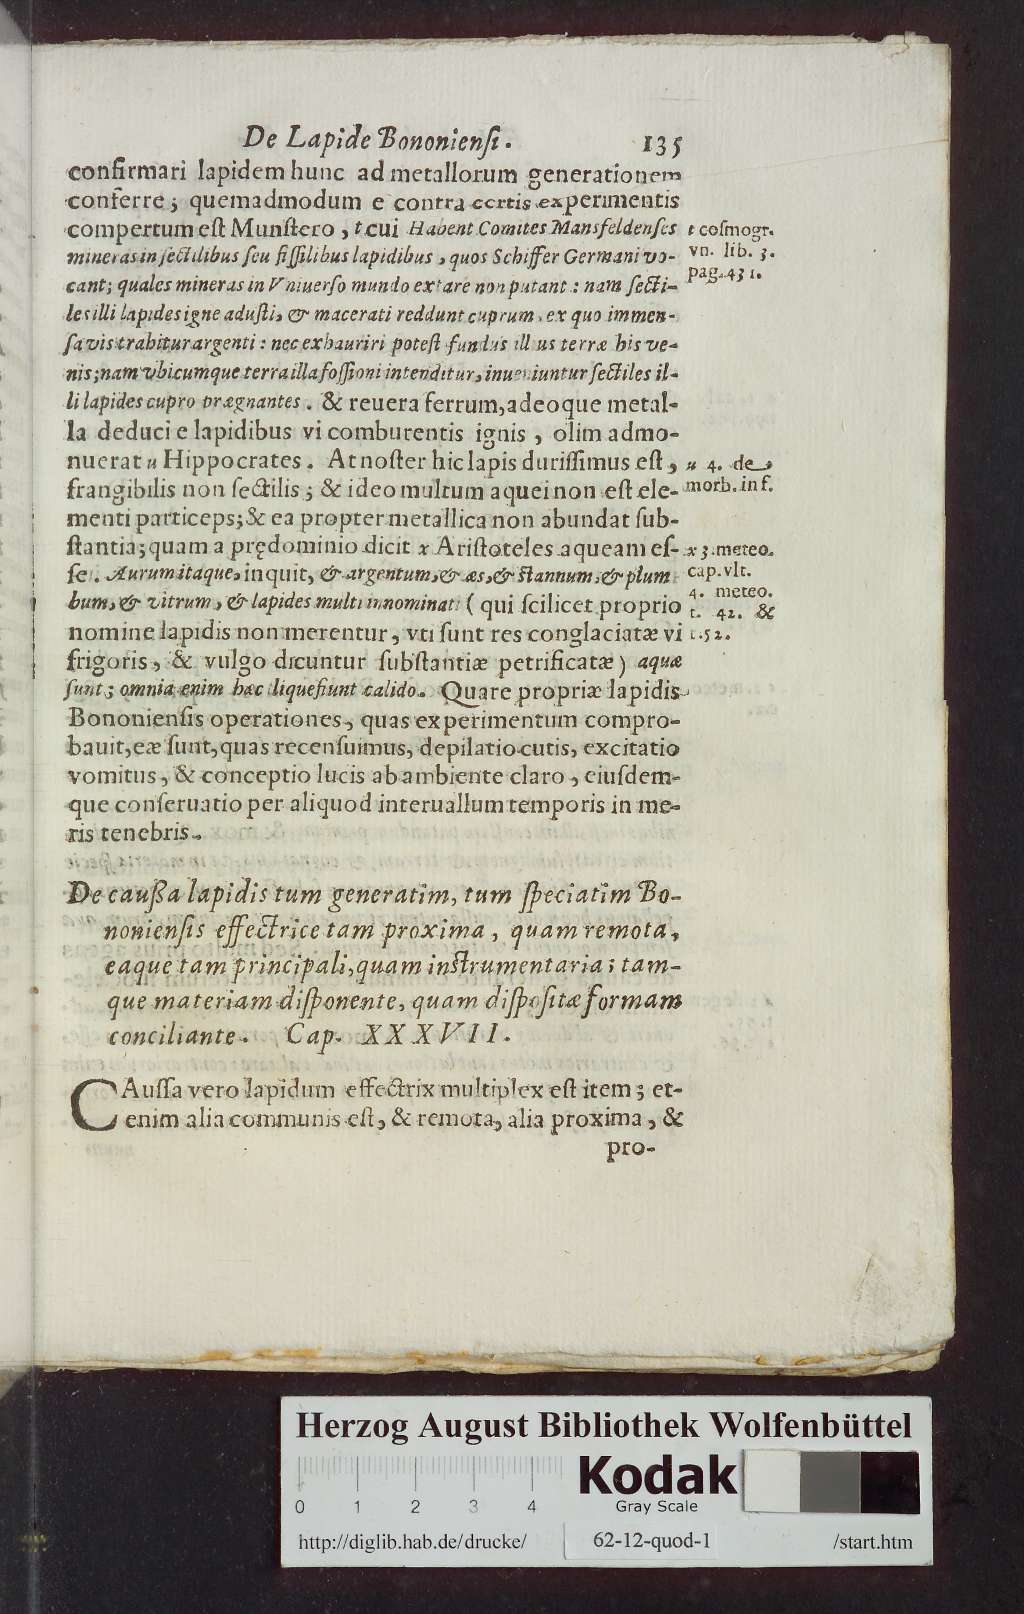 De Lapide Bononiensi. 135
confirmari lapidem hunc ad metallorum generationem
conferre; quemadmodum e contra certis experimentis
compertum est Munstero, t cui Habent Comites Mansfeldenses
mineras in sectilibus seu fissilibus lapidibus, quos Schiffer Germani vo-
cant; quales mineras in Vniuerso mundo extare non putant: nam secti-
les illi lapides igne adusti, & macerati reddunt cuprum, ex quo immen-
sa vis trahitur argenti: nec exhauriri potest fundus illius terræ his ve-
nis; nam vbicumque terra illa fossioni intenditur, inueniuntur sectiles il-
li lapides cupro prægnantes. & reuera ferrum, adeoque metal-
la deduci e lapidibus vi comburentis ignis, olim admo-
nuerat u Hippocrates. At noster hic lapis durissimus est,
frangibilis non sectilis; & ideo multum aquei non est ele-
menti particeps; & ea propter metallica non abundat sub-
stantia; quam a prędominio dicit x Aristoteles aqueam es-
se. Aurum itaque, inquit, & argentum, & æs, & stannum, & plum
bum, & vitrum, & lapides multi innominati (qui scilicet proprio
nomine lapidis non merentur, vti sunt res conglaciatæ vi
frigoris, & vulgo dicuntur substantiæ petrificatæ) aquæ
sunt; omnia enim hæc liquefiunt calido. Quare propriæ lapidis
Bononiensis operationes, quas experimentum compro-
bauit, eæ sunt, quas recensuimus, depilatio cutis, excitatio
vomitus, & conceptio lucis ab ambiente claro, eiusdem-
que conseruatio per aliquod interuallum temporis in me-
ris tenebris.
t cosmogr.
vn. lib. 3.
pag. 431.
u 4. de
morb. inf.
x 3. meteo.
cap. vlt.
4. meteo.
t. 42. &
t. 52.
De caußa lapidis tum generatim, tum speciatim Bo-
noniensis effectrice tam proxima, quam remota,
eaque tam principali, quam instrumentaria; tam-
que materiam disponente, quam dispositæ formam
conciliante. Cap. XXXVII.
CAussa vero lapidum effectrix multiplex est item; et-
enim alia communis est, & remota, alia proxima, &
pro-
Herzog August Bibliothek Wolfenbüttel
Kodak
Gray Scale
0 1 2 3 4
http://diglib.hab.de/drucke/ 62-12-quod-1 /start.htm